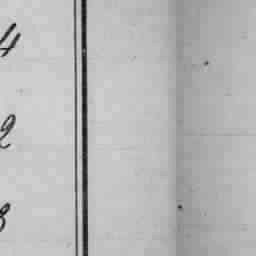 4
2
8